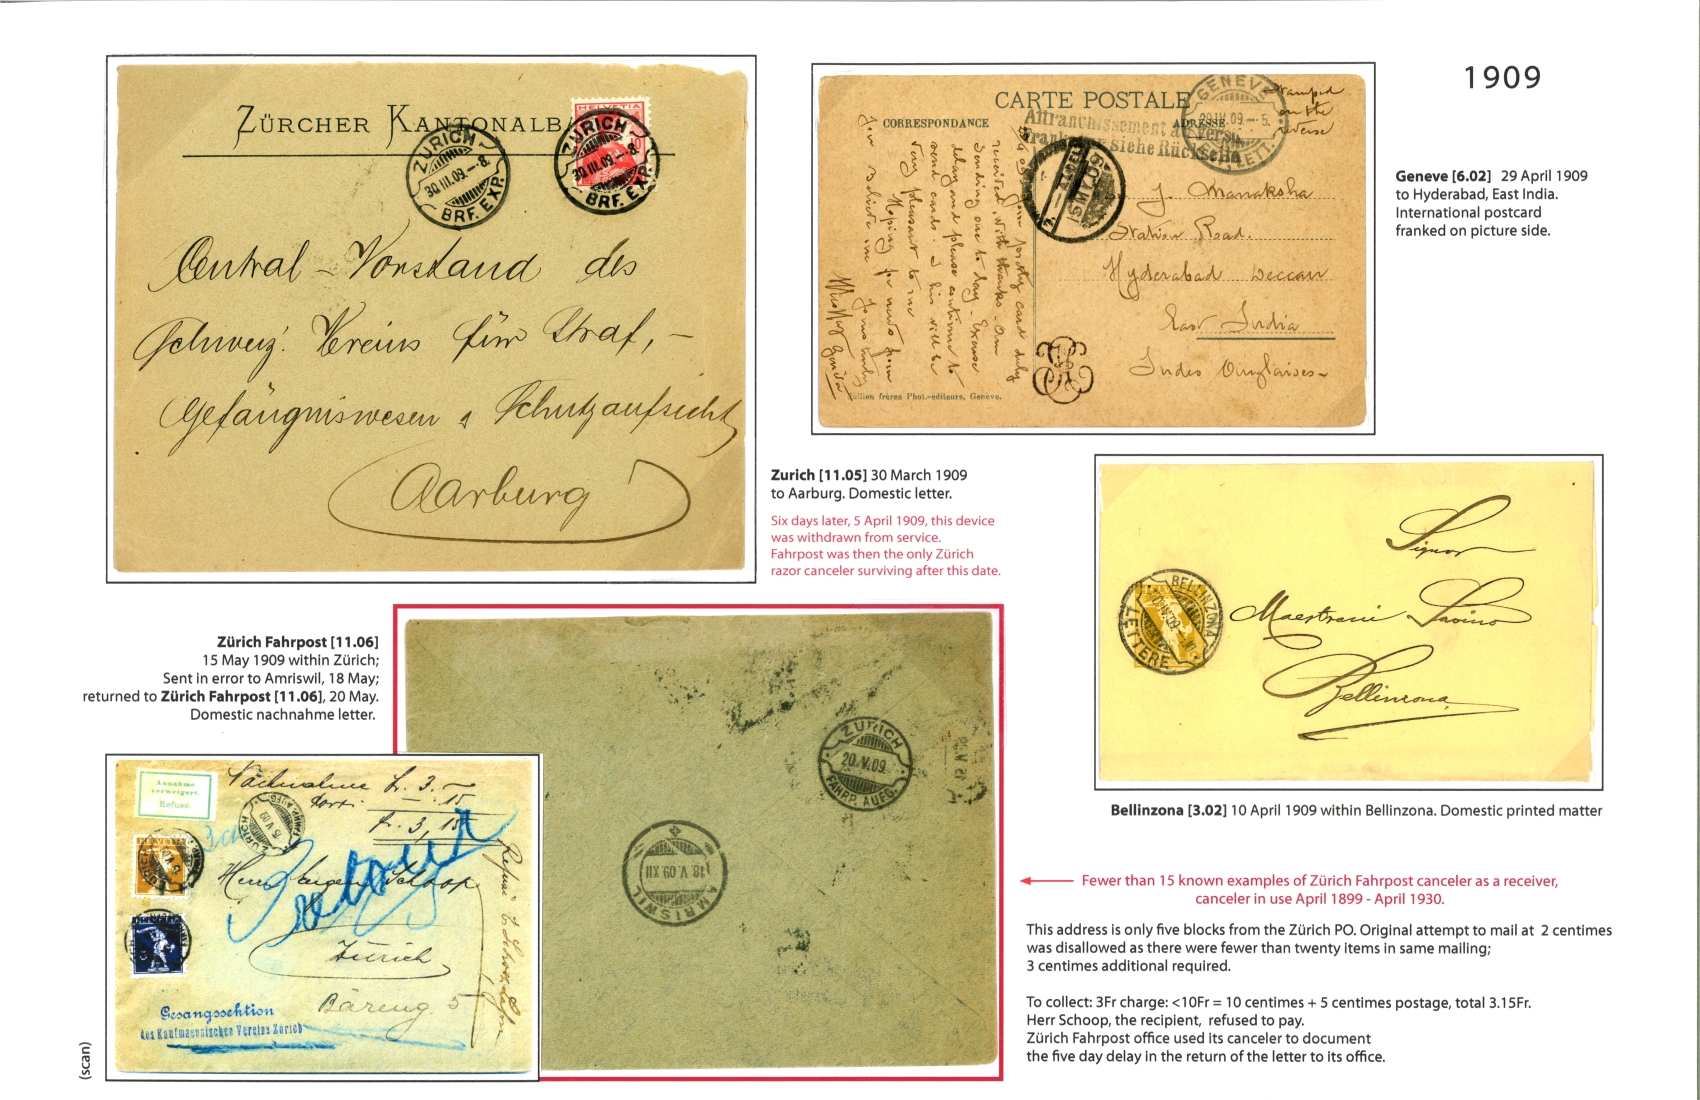 1909
ZÜRCHER KANTONALBA
HELVETIA
10
ZÜRICH
30.III.09.-8.
BRF. EXP.
ZÜRICH
30.III.09.-8.
BRF. EXP.
Central-Vorstand des
Schweiz. Vereins für Straf,-
Gefängniswesen & Schutzaufsicht
Aarburg
CARTE POSTALE
CORRESPONDANCE
ADRESSE
Affranchissement au verso
Frankatur siehe Rückseite
GENEVE
29.IV.09.-5.
LETT.
stamped
on the
reverse
Your pretty card duly
received, with thanks. Am
sending one to day. Excuse
delay and please continue to
send cards. This will be
very pleasant to me
Hoping for news from
you Believe me Yours truly
J. Manaksha
Station Road.
Hyderabad Deccan
East India
Indes Anglaises-
Jullien frères Phot.-editeurs, Genève.
Geneve [6.02] 29 April 1909
to Hyderabad, East India.
International postcard
franked on picture side.
Zurich [11.05] 30 March 1909
to Aarburg. Domestic letter.
Six days later, 5 April 1909, this device
was withdrawn from service.
Fahrpost was then the only Zürich
razor canceler surviving after this date.
BELLINZONA
LETTERE
Signor
Maestrani Savino
Bellinzona
Bellinzona [3.02] 10 April 1909 within Bellinzona. Domestic printed matter
Zürich Fahrpost [11.06]
15 May 1909 within Zürich;
Sent in error to Amriswil, 18 May;
returned to Zürich Fahrpost [11.06], 20 May.
Domestic nachnahme letter.
ZÜRICH
20.V.09.
FAHRP. AUFG.
AMRISWIL
18.V.09.XII
Annahme
verweigert.
Refusé.
Nachnahme fr. 3.-
Porto -.15
fr. 3,15
ZÜRICH
15.V.09
FAHRP. AUFG.
Herrn Eugen Schoop
Zürich
Bäreng 5
retour
Gesangssektion
des Kaufmaennischen Vereins Zürich
(scan)
Fewer than 15 known examples of Zürich Fahrpost canceler as a receiver,
canceler in use April 1899 - April 1930.
This address is only five blocks from the Zürich PO. Original attempt to mail at 2 centimes
was disallowed as there were fewer than twenty items in same mailing;
3 centimes additional required.
To collect: 3Fr charge: <10Fr = 10 centimes + 5 centimes postage, total 3.15Fr.
Herr Schoop, the recipient, refused to pay.
Zürich Fahrpost office used its canceler to document
the five day delay in the return of the letter to its office.